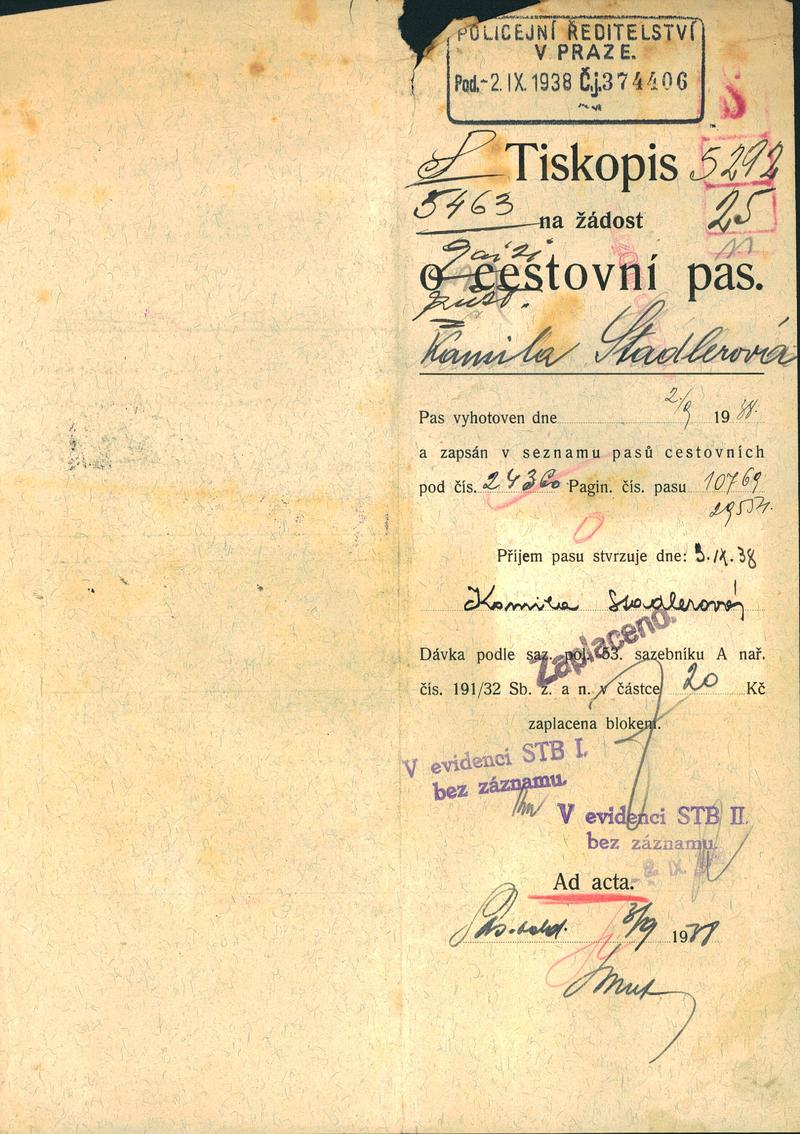 POLICEJNÍ ŘEDITELSTVÍ
V PRAZE.
Pod.-2.IX.1938 Čj.374406
S
Tiskopis 5292
5463 na žádost 25
o cestovní pas.
Kamila Stadlerová
Pas vyhotoven dne 2/9 1938.
a zapsán v seznamu pasů cestovních
pod čís. Pagin. čís. pasu 10769
Příjem pasu stvrzuje dne: 3.IX.38
Kamila Stadlerová
Zaplaceno.
Dávka podle saz. pol. 53. sazebníku A nař.
čís. 191/32 Sb. z. a n. v částce 20 Kč
zaplacena blokem.
V evidenci STB I.
bez záznamu.
V evidenci STB II.
bez záznamu.
-2 IX.
Ad acta.
3/9 1938